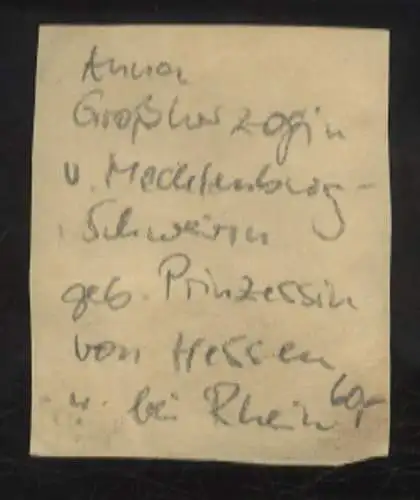 Anna
Großherzogin
v. Mecklenburg-
Schwerin
geb. Prinzessin
von Hessen
u. bei Rhein 60,-